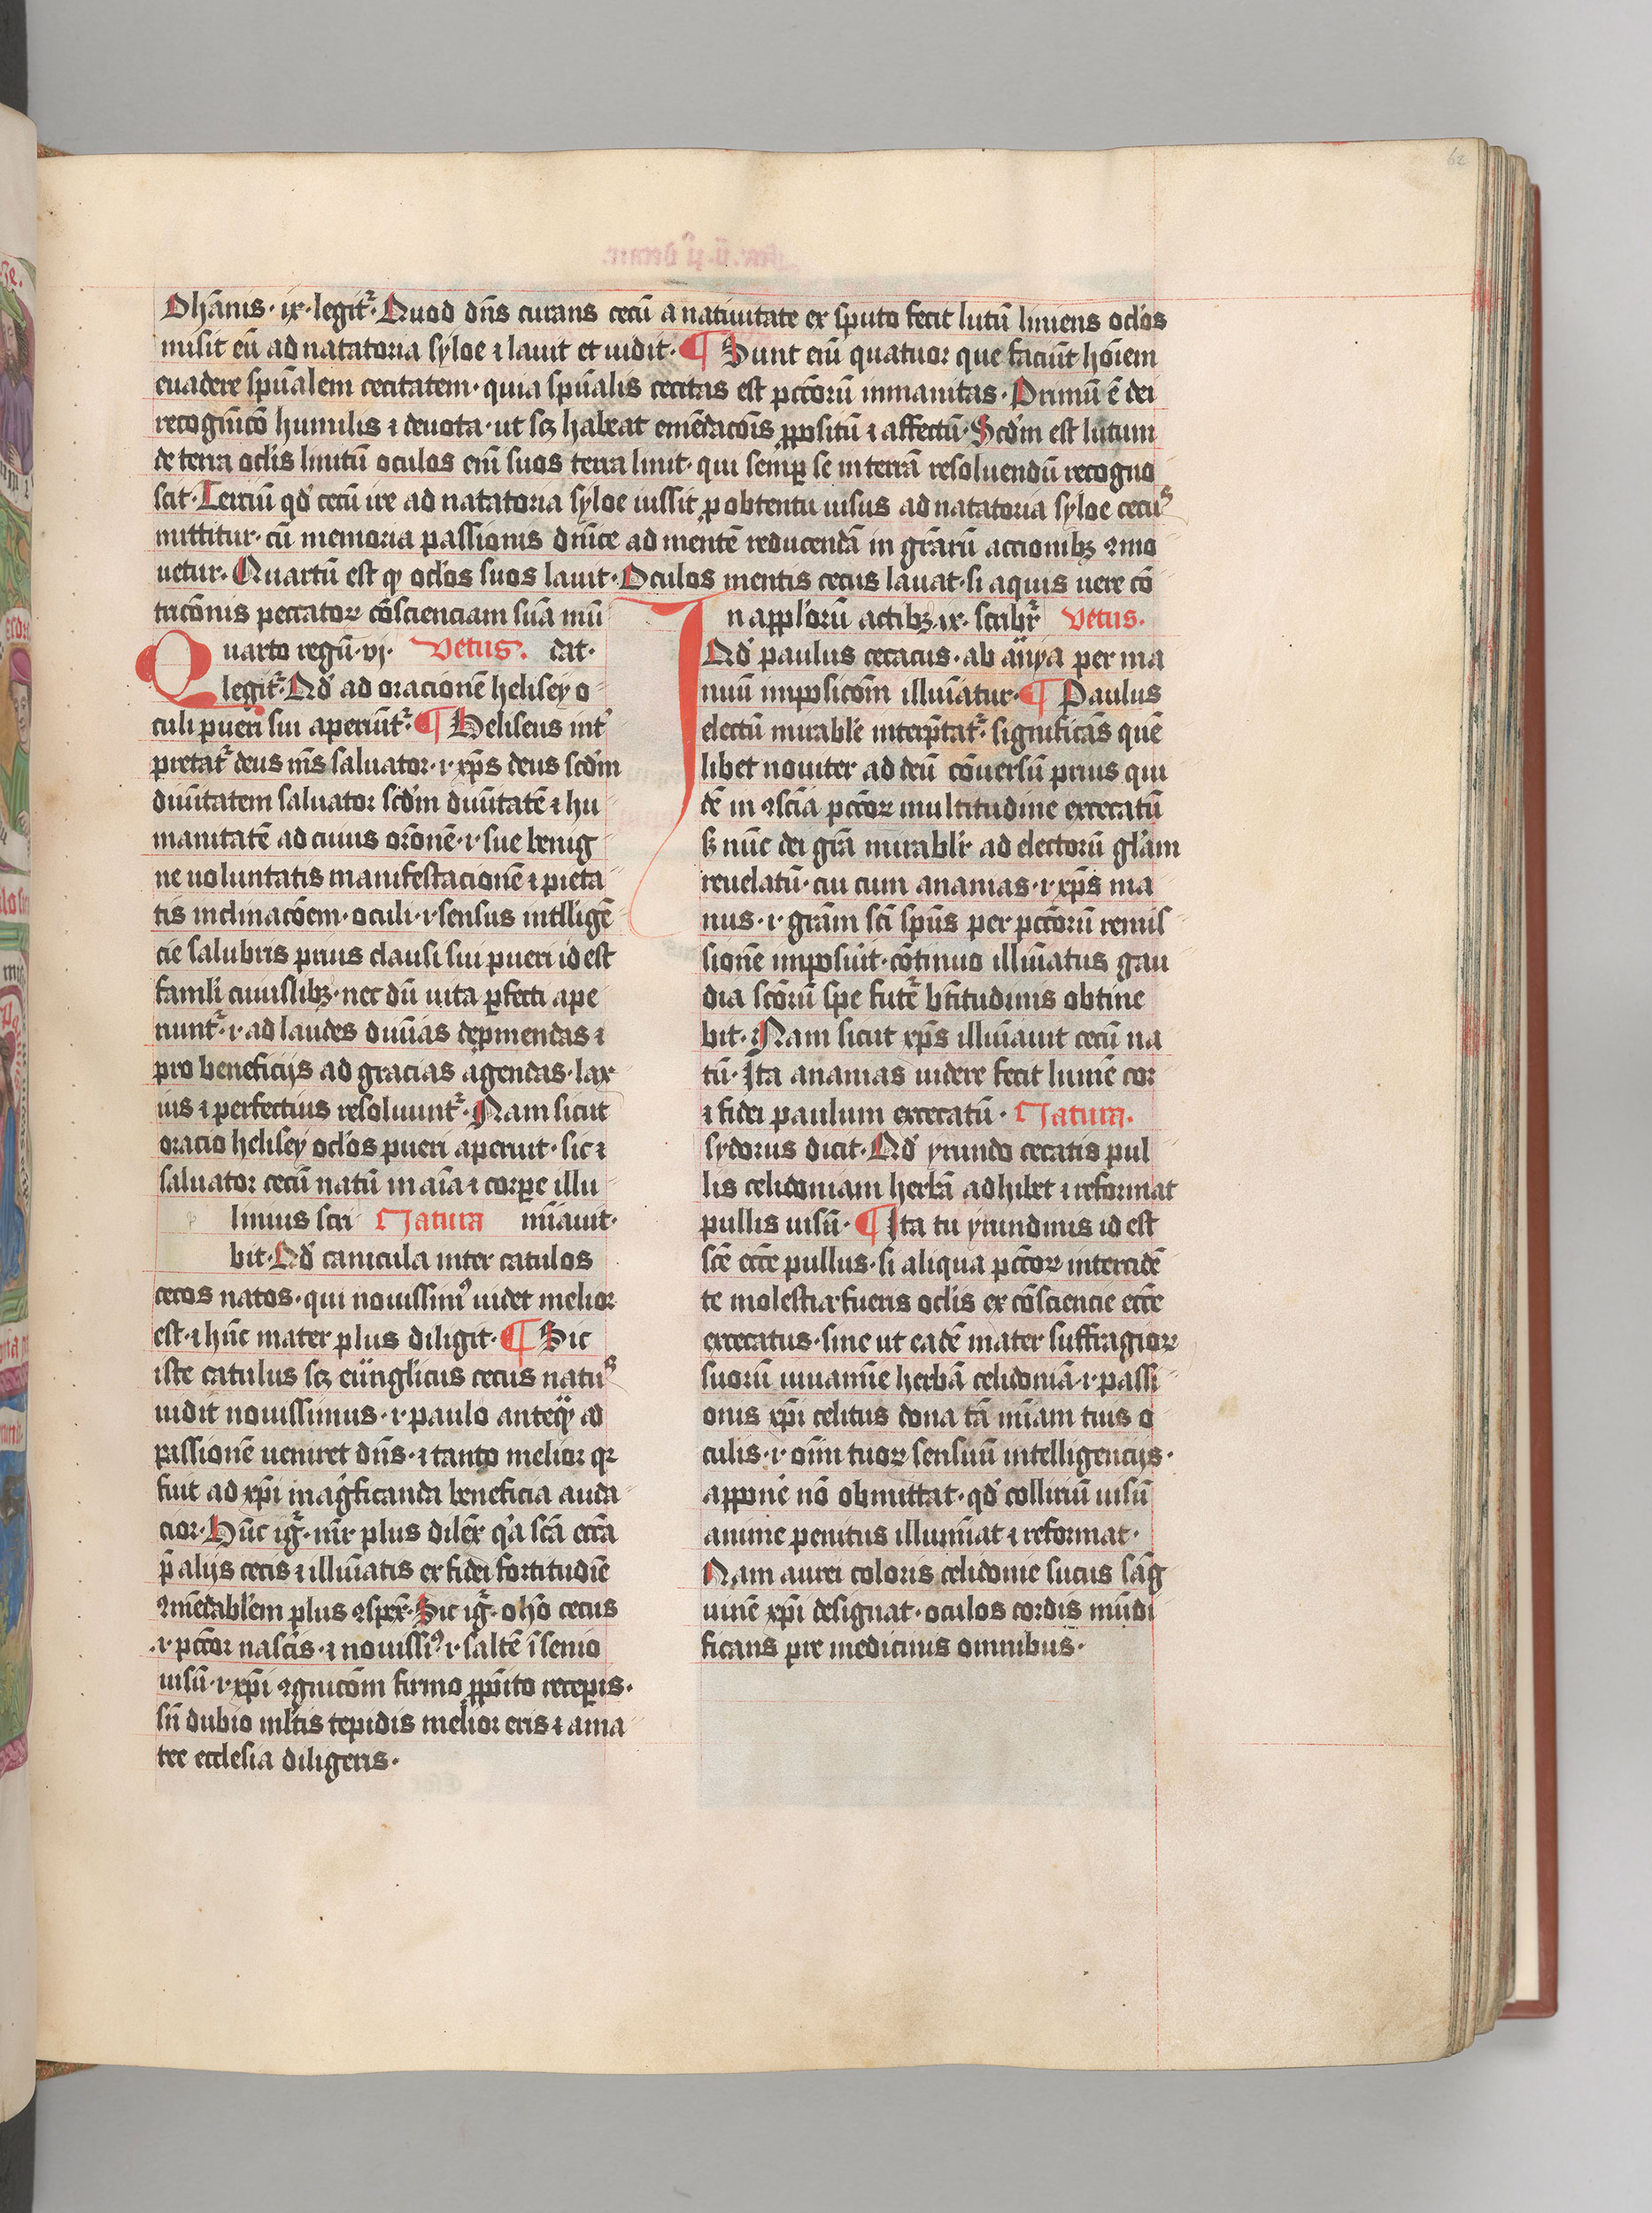 62
Ohānis · ix · legit᷑ · Quod dn̄s curans cecū a natiuitate ex sputo fecit lutū liniens oclos
misit eū ad natatoria syloe ⁊ lauit et uidit · ¶ Sunt eni᷑ quatuor que faciūt hoīem
euadere spūalem cecitatem · quia spūalis cecitas est pctōrū inmanitas · Primū ē dei
recognicō humilis ⁊ deuota · ut scꝫ habeat emēdacōis ꝓpositū ⁊ affectū · Scdm est lutum
de terra oclis linitū oculos eni᷑ suos terra linit · qui semꝑ se in terrā resoluendū recogno
scit · Terciū qd cecū ire ad natatoria syloe iussit ꝓ obtentu uisus ad natatoria syloe cecus
mittitur · cū memoria passionis dn̄ice ad mentē reducendā in grārū accionibꝫ ꝯmo
uetur · Quartū est ꝙ oclos suos lauit · Oculos mentis cecus lauat · si aquis uere cō
tricōnis peccatoꝝ cōscienciam suā mū
Quarto regū · vj · Vetus · dat ·
legit᷑ · Qd ad oracionē helisey o
culi pueri sui aperiūt᷑ · ¶ Heliseus int̉
pretat᷑ deus m̄s saluator · i · xp̄s deus scdm
diuītatem saluator scdm diuītatē ⁊ hu
manitatē ad cuius orōnē · i · sue benig
ne uoluntatis manifestacionē ⁊ pieta
tis inclinacōem · oculi · i · sensus intlligē
cie salubris prius clausi sui pueri id est
famli cuiuslibꝫ · nec dū uita ꝑfecti ape
riunt᷑ · i · ad laudes diuīas depmendas ⁊
pro beneficijs ad gracias agendas · lax
ius ⁊ perfectius resoluunt᷑ · Nam sicut
oracio helisey oclos pueri aperuit · sic ⁊
saluator cecū natū in aīa ⁊ corpore illu
linius scri Natura mīauit ·
bit · Qd canicula inter catulos
cecos natos · qui nouissimꝰ uidet melior
est · ⁊ hūc mater plus diligit · ¶ Sic
iste catulus scꝫ euāglicus cecus natus
uidit nouissimus · i · paulo anteꝙ ad
passionē ueniret dn̄s · ⁊ tanto melior qꝛ
fuit ad xp̄i magficanda beneficia auda
cior · Hūc ig᷑ · mr̄ plus dilex̄ qa scā eccā
p̄ alijs cecis ⁊ illuīatis ex fidei fortitudīe
ꝯmēdablem plus ꝯspex̄ · Sic ig᷑ · o hō cecus
· i · pctōr nascis · ⁊ nouissỉ · i · saltē ī senio
uisū · i · xp̄i ꝯgnicōm firmo ꝓpōito receperis ·
sn̄ dubio mltis tepidis melior eris ⁊ a ma
tre ecclesia diligeris ·
In applorū actibꝫ · ix · scribr᷑ Vetus ·
Qd paulus cecatus · ab anīya per ma
nuū impposicōm illuīatur · ¶ Paulus
electū mirable interp̄tat᷑ · significās quē
libet nouiter ad deū cōuersū prius qui
dē in ꝯscīa pctōꝝ multitudine excecatū
sꝫ nūc dei grā mirablr ad electorū glām
reuelatū · cui cum ananias · i · xp̄s ma
nus · i · grām scī spūs per pctōrū remis
sionē imposuit · cōtinuo illuīatus gau
dia scōrū spe futꝛ̄ bt̄itudinis obtine
bit · Nam sicut xp̄s illuīauit cecū na
tū · Ita ananias uidere fecit lumē cor
⁊ fidei paulum excecatū · Natura ·
sydorus dicit · Qd yrundo cecatis pul
lis celidoniam herbā adhibet ⁊ reformat
pullis uisū · ¶ Ita tu yrundinis id est
scē eccē pullus · si aliqua pctōꝝ intercidē
te molestia fueris oclis ex cōsciencie eccē
excecatus · sine ut eadē mater suffragioꝝ
suorū iuuamīe herbā celidoniā · i · passi
onis xp̄i celitus dona tā mīam tuis o
culis · i · oīm tuoꝝ sensuū intelligencijs ·
apponē nō obmittat · qd colliriū uisū
anime penitus illumīat ⁊ reformat ·
Nam aurei coloris celidonie sucus sāg
uinē xp̄i designat · oculos cordis mūdi
ficans pre medicinis omnibus ·